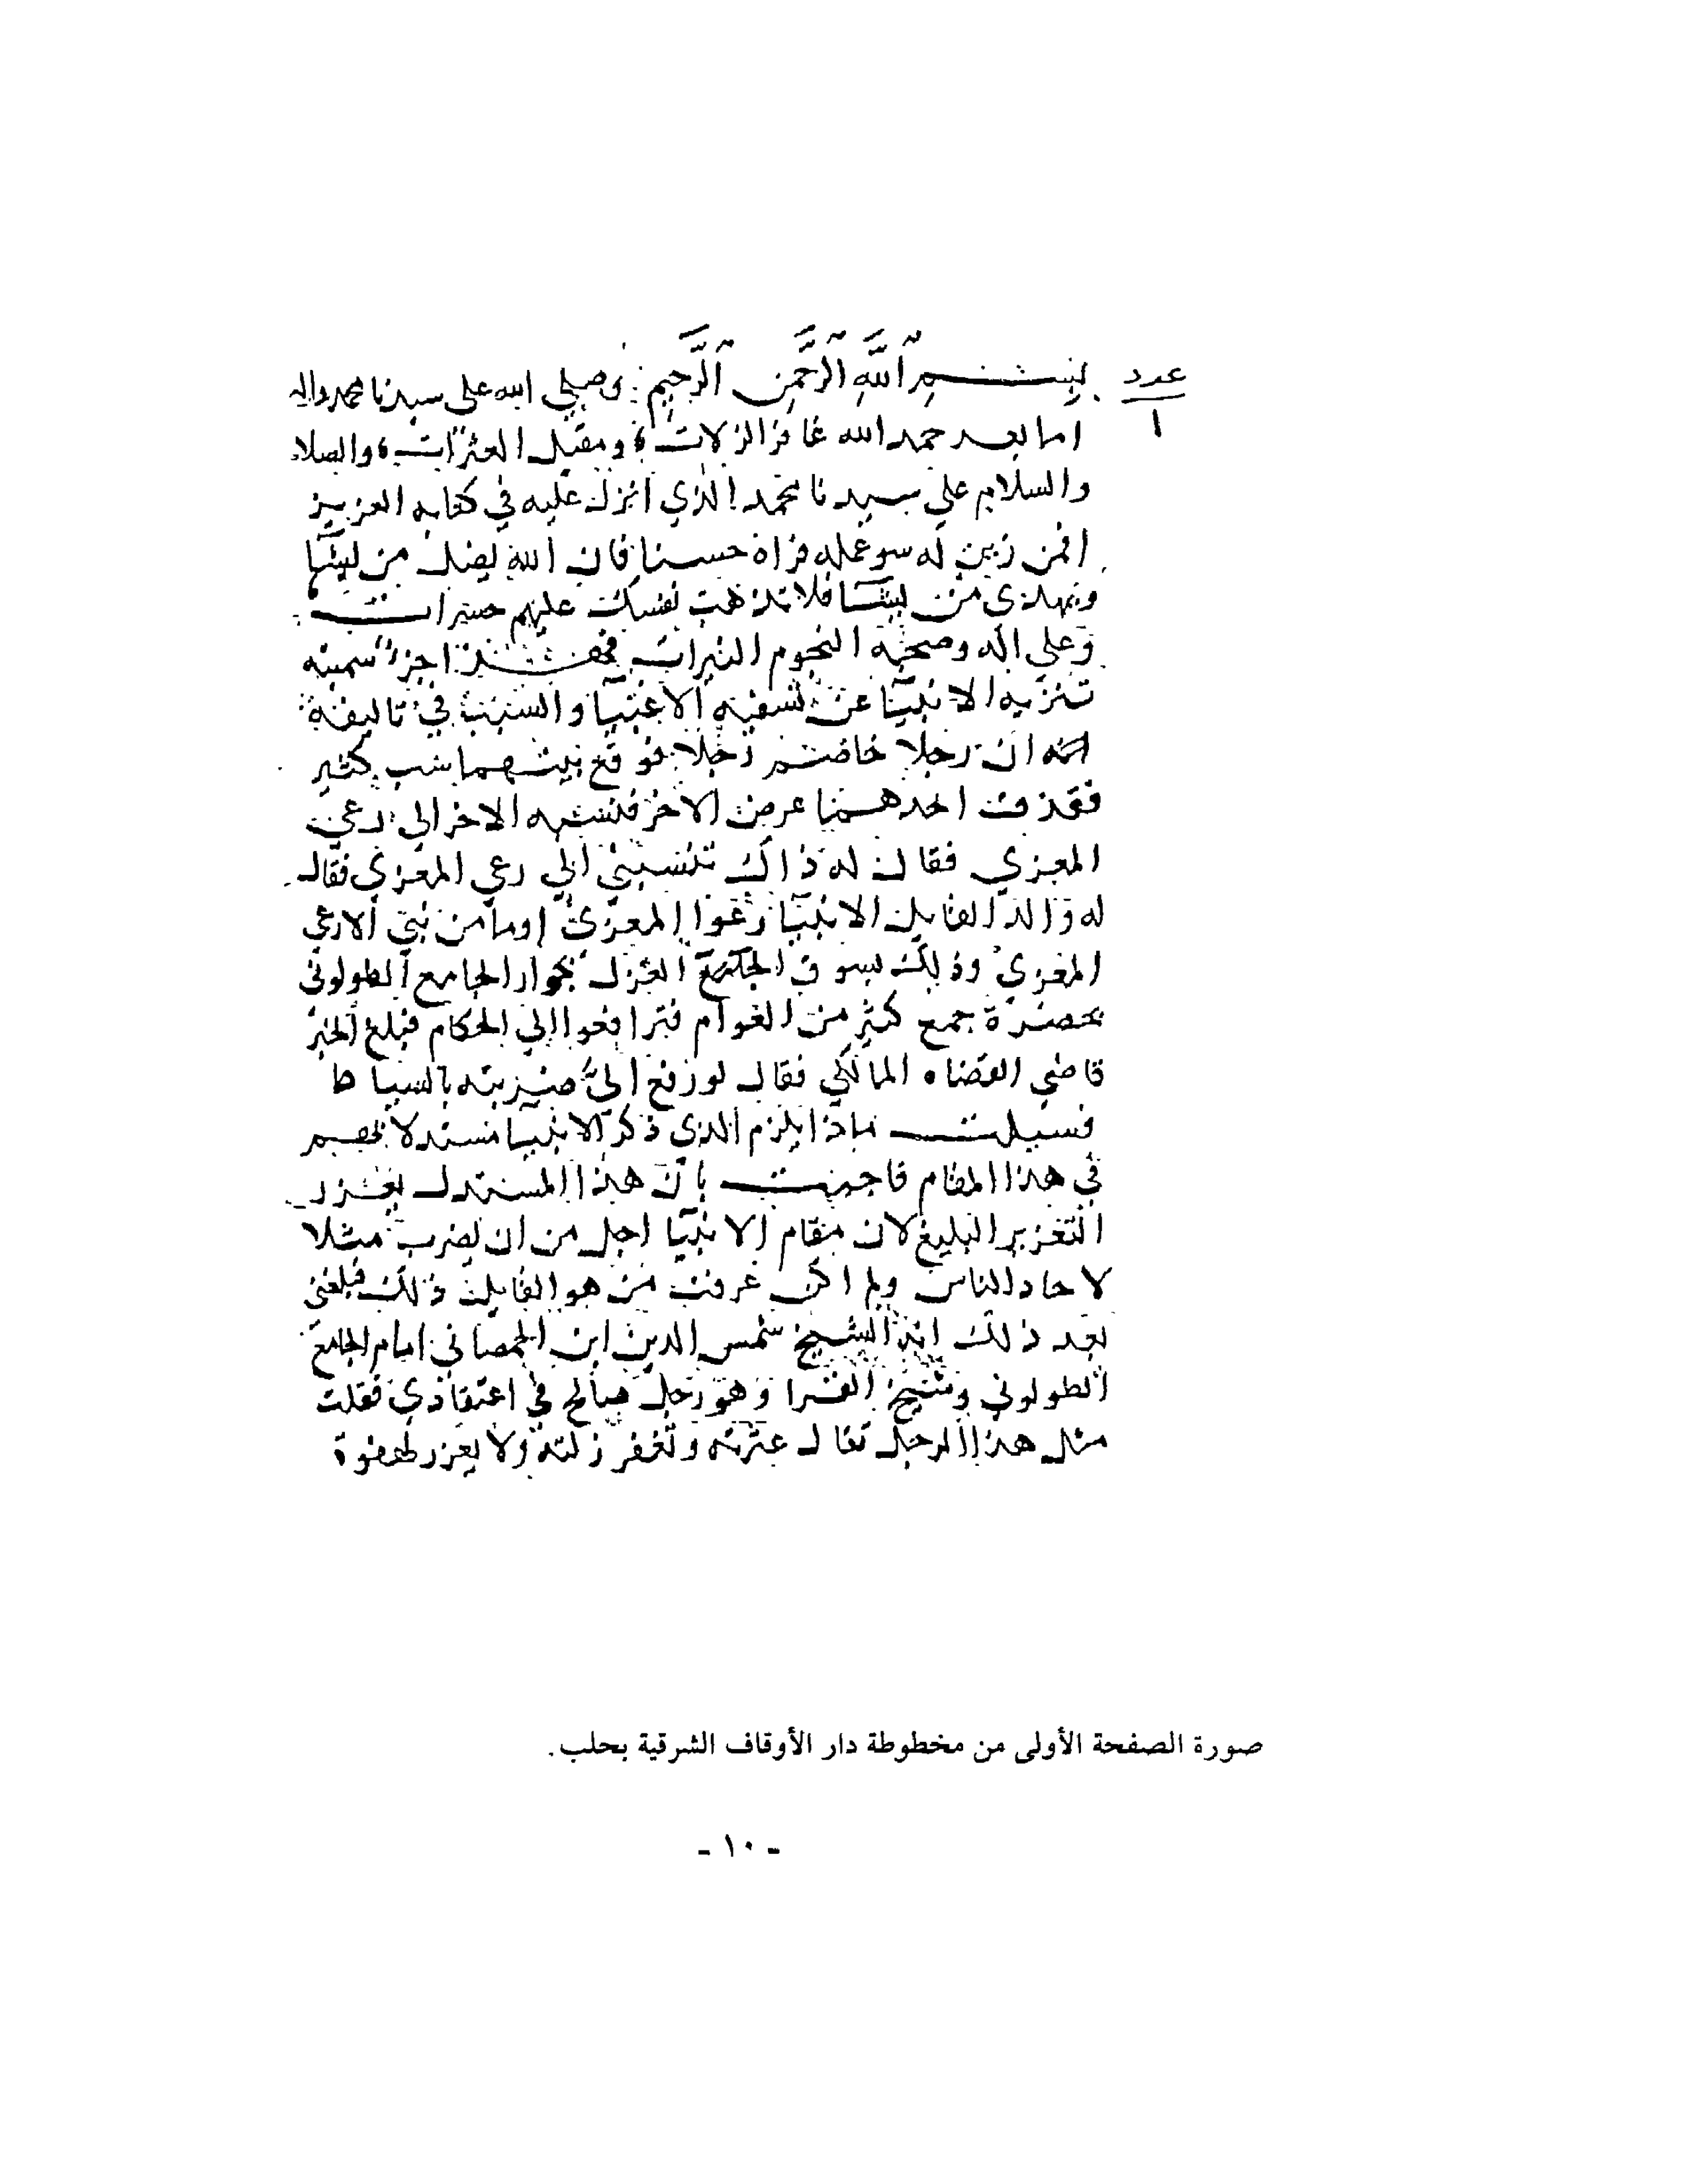 عدد
١
بسم الله الرحمن الرحيم وصلى الله على سيدنا محمد واله
اما بعد حمد الله غافر الزلات ومقيل العثرات والصلاة
والسلام على سيدنا محمد الذي انزل عليه في كتابه العزيز
افمن زين له سو عمله فراه حسنا فان الله يضل من يشآ
ويهدي من يشآ فلا تذهب نفسك عليهم حسرات
وعلى اله وصحبه النجوم النيرات فهذا جزء سميته
تنزيه الانبيآ عن تسفيه الاغبيا والسبب في تاليفه
انه ان رجلا خاصم رجلا فوقع بينهما سب كثير
فقذف احدهما عرض الاخر فنسبه الاخر الى رعي
المعزي فقال له ذاك تنسبني الى رعي المعزي فقال
له والد القايل الانبيآ رعوا المعزي او ما من نبي الا رعى
المعزي وذلك بسوق الغزل بجوار الجامع الطولوني
بحضرة جمع كثير من العوام فترافعوا الى الحكام فبلغ الخبر
قاضي القضاه المالكي فقال لو رفع الي ضربته بالسياط
فسيلت ماذا يلزم الذي ذكر الانبيا مستدلا بهم
في هذا المقام فاجبت بان هذا المستدل يعزر
التعزير البليغ لان مقام الانبيآ اجل من ان يضرب مثلا
لاحاد الناس ولم اكن عرفت من هو القايل ذلك فبلغني
بعد ذلك انه الشيخ شمس الدين ابن الحمصاني امام الجامع
الطولوني وشيخ القرا وهو رجل صالح في اعتقادي فقلت
مثل هذا الرجل تقال عثرته وتغفر زلته ولا يعزر لهفوة
صورة الصفحة الأولى من مخطوطة دار الأوقاف الشرقية بحلب.
- ١٠ -